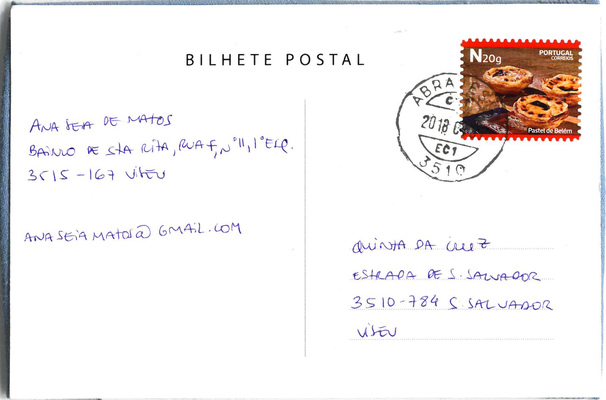 BILHETE POSTAL
N20g
PORTUGAL
CORREIOS
Pastel de Belém
ABRA
2018
EC1
3510
ANA SEIA DE MATOS
BAIRRO DE STA RITA, RUA F, Nº11, 1º ESQ.
3515-167 VISEU
ANASEIAMATOS@GMAIL.COM
QUINTA DA CRUZ
ESTRADA DE S. SALVADOR
3510-784 S SALVADOR
VISEU